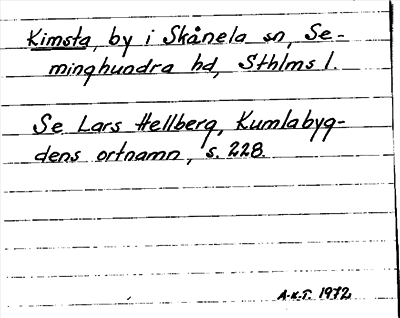 Kimsta, by i Skånela sn, Se-
minghundra hd, Sthlms l.
Se Lars Hellberg, Kumlabyg-
dens ortnamn, s. 228.
A.K.T. 1972